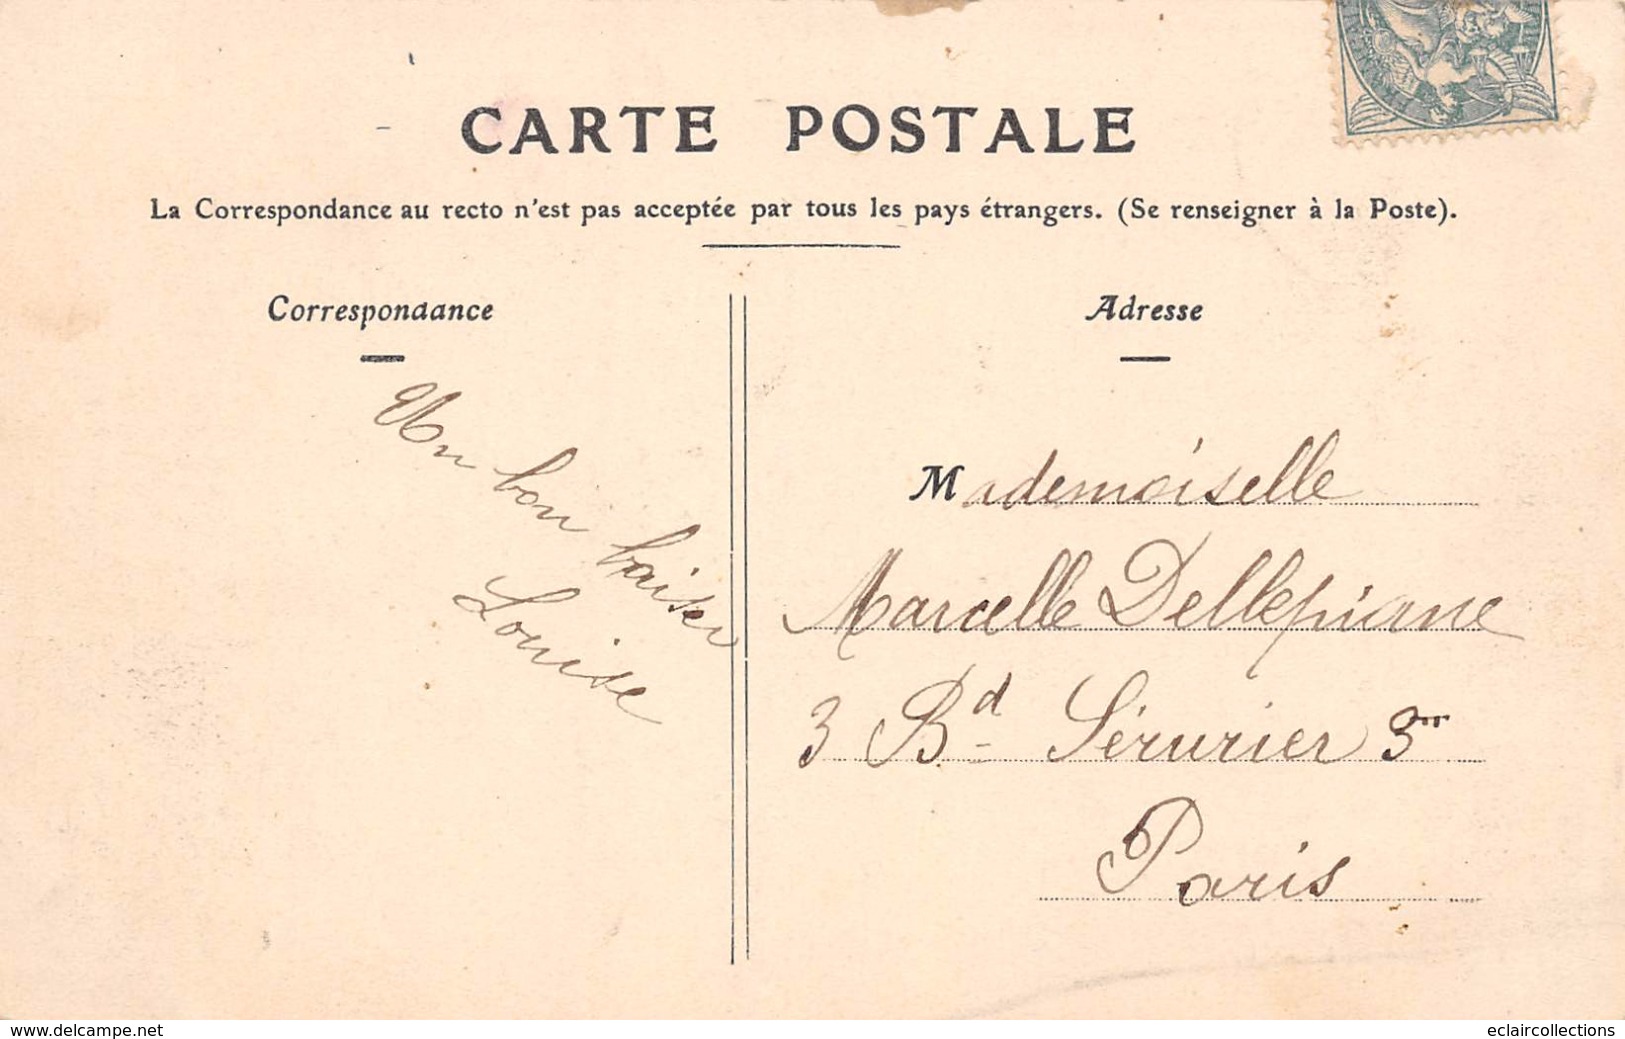 CARTE POSTALE
La Correspondance au recto n'est pas acceptée par tous les pays étrangers. (Se renseigner à la Poste).
Correspondance
Un bon baiser
Louise
Adresse
Mademoiselle
Marcelle Dellepiane
3 Bd Sérurier 3
Paris
www.delcampe.net
eclaircollections